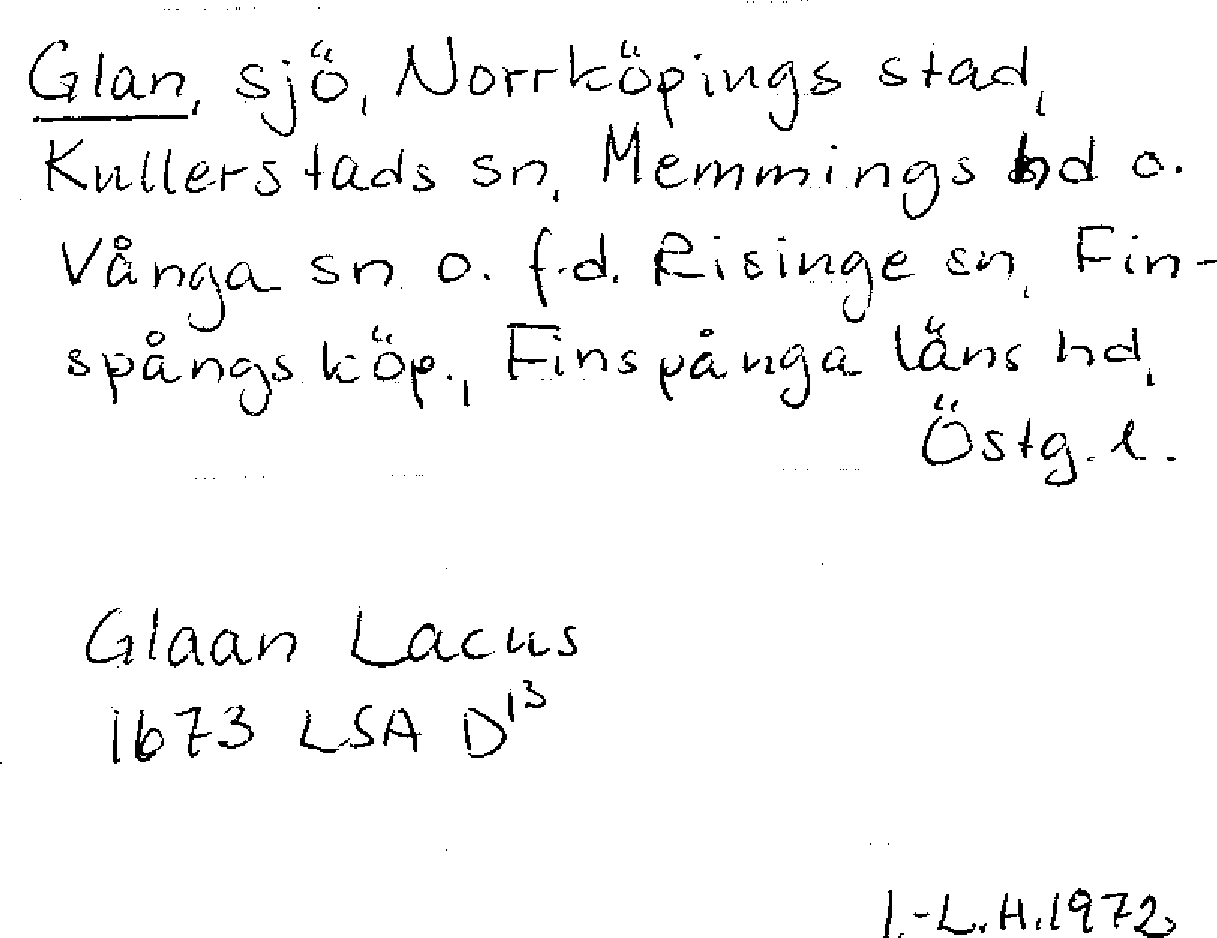 Glan, sjö, Norrköpings stad,
Kullerstads sn, Memmings hd o.
Vånga sn o. f.d. Risinge sn, Fin-
spångs köp., Finspånga läns hd,
Östg. l.
Glaan Lacus
1673 LSA D¹³
I.-L.H. 1972